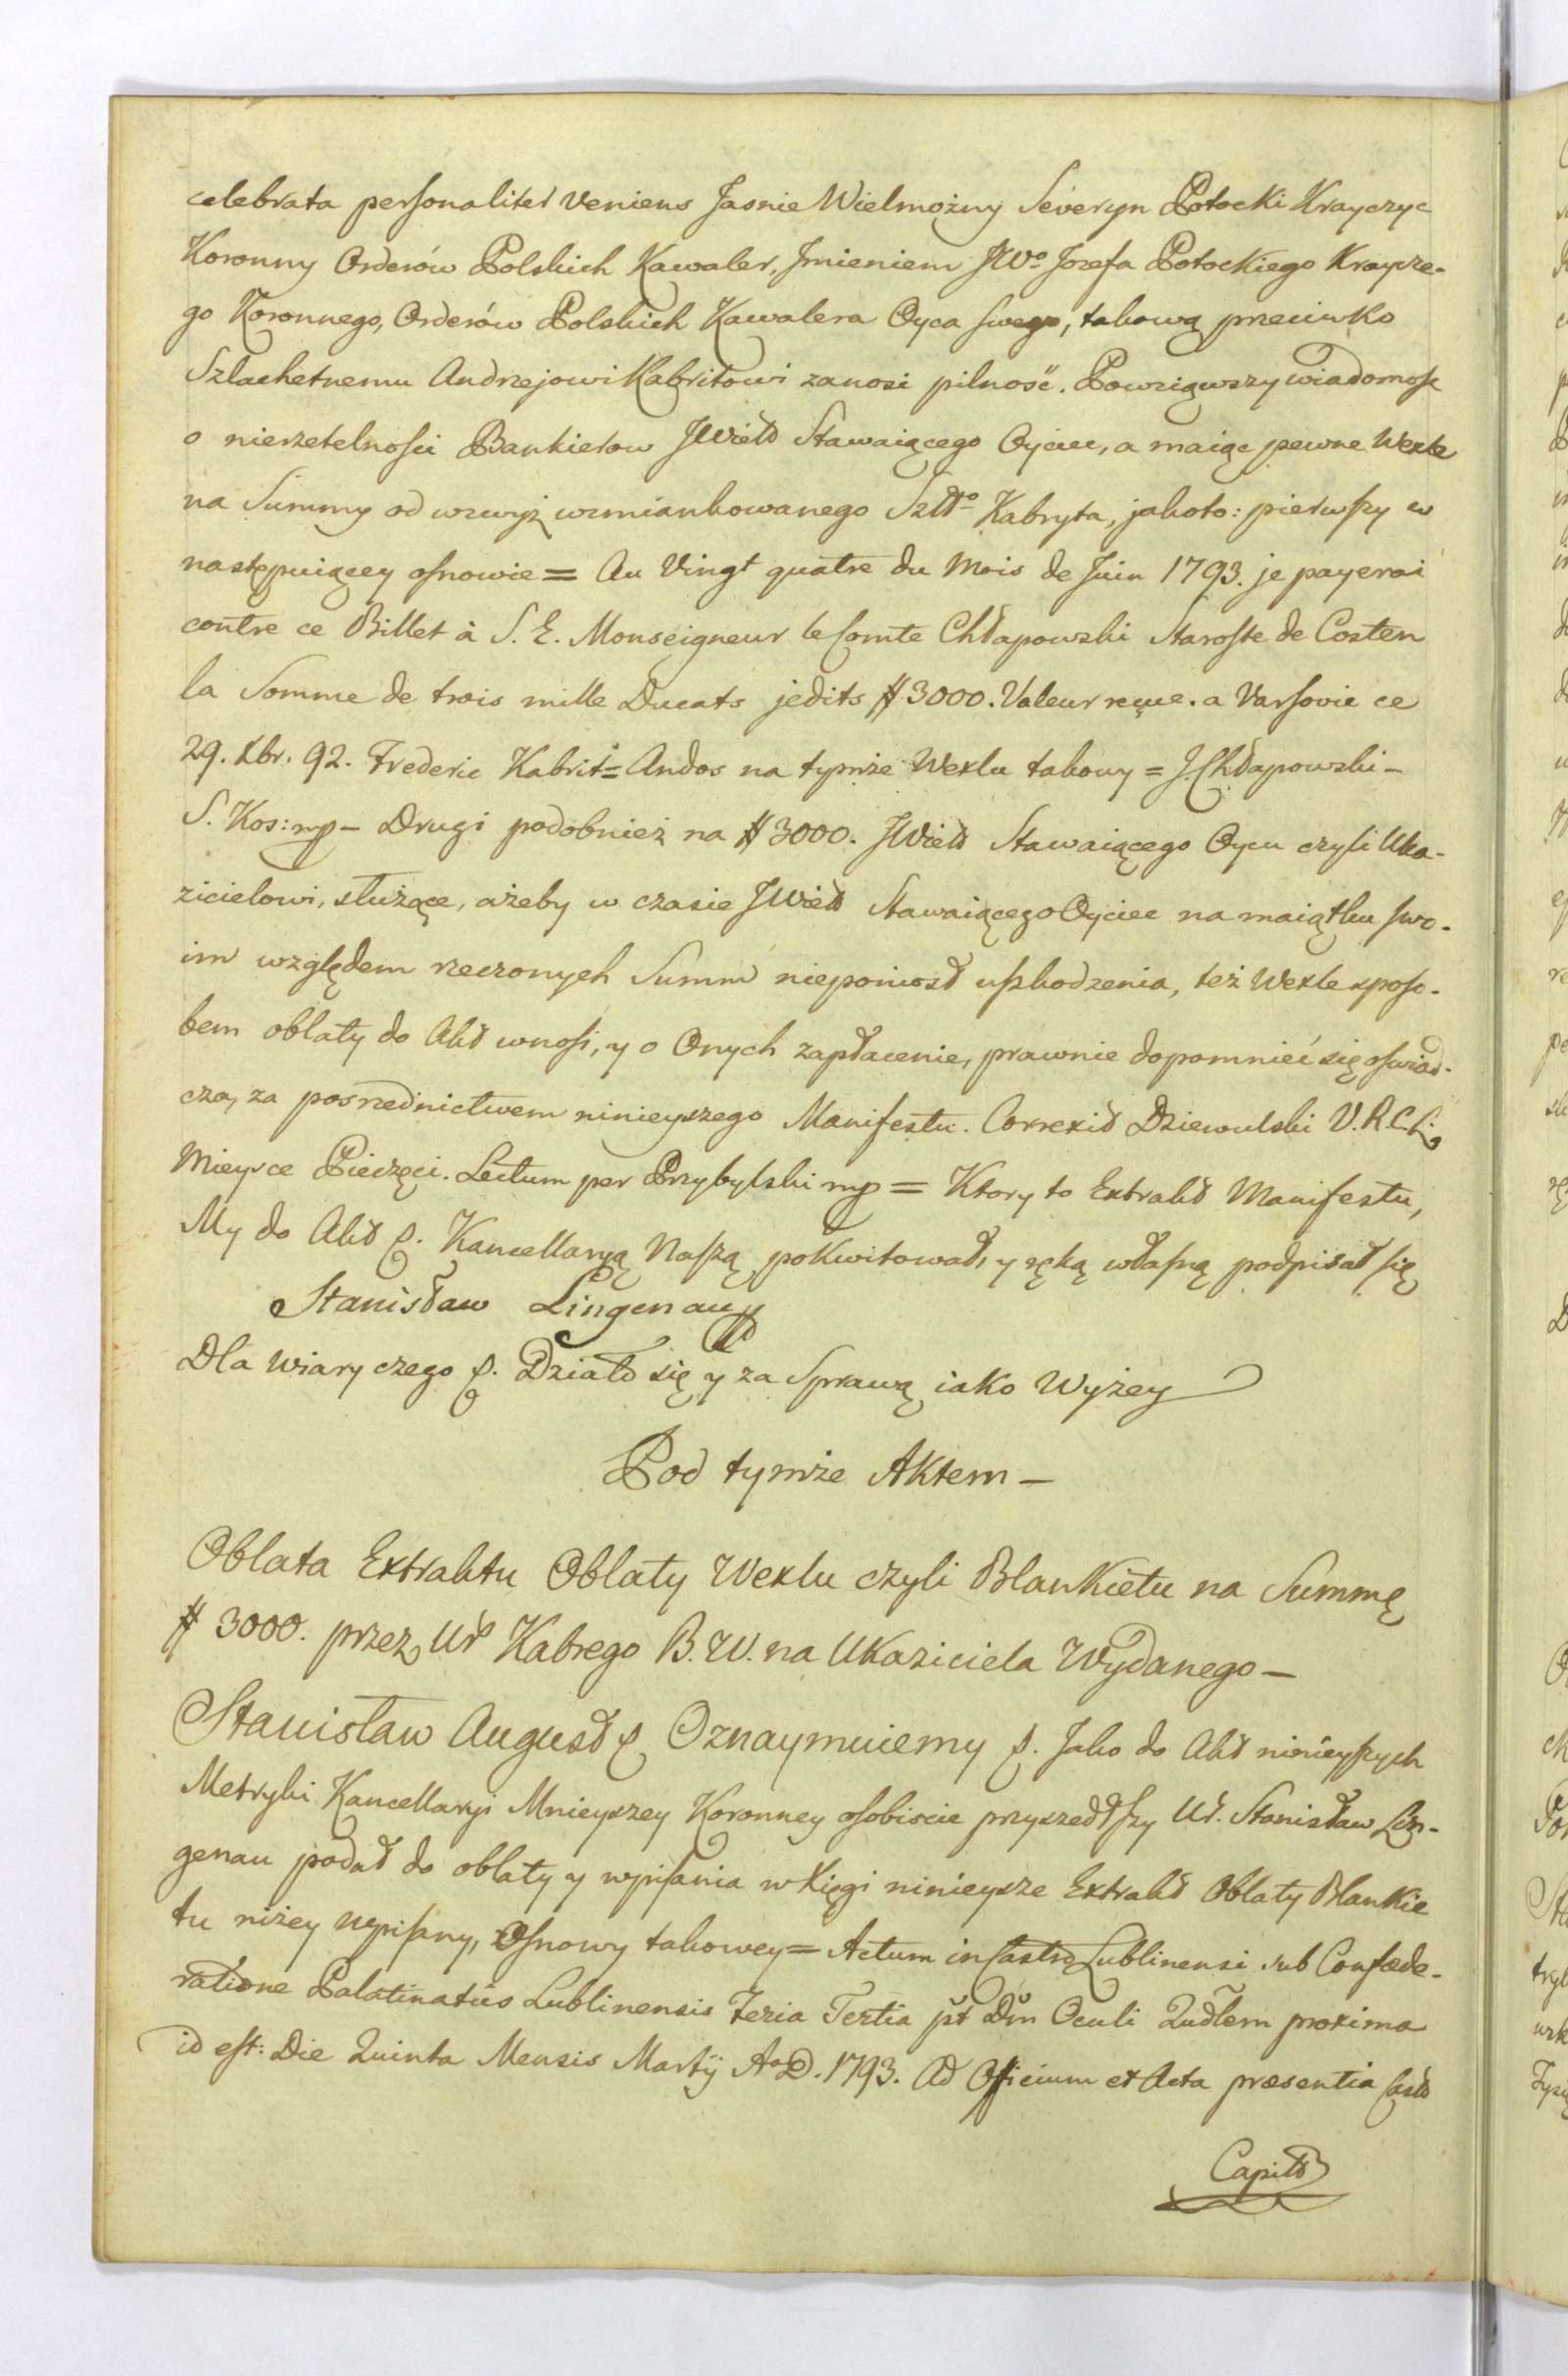 celebrata personaliter veniens Jasnie Wielmożny Seweryn Potocki Krayczyc
Koronny Orderów Polskich Kawaler, Jmieniem JWo Jozefa Potockiego Kraycze-
go Koronnego, Orderów Polskich Kawalera Oyca swego, takową przeciwko
Szlachetnemu Andrzejowi Kabritowi zanosi pilność. Powziąwszy wiadomość
o nierzetelności Bankierow JWield Stawaiącego Oyciec, a maiąc pewne Wexle
na Summy od wzwyż wzmiankowanego Szlo Kabryta, jakoto: pierwszy w
następuiącey osnowie = Au Vingt quatre du Mois de Juin 1793. je payerai
contre ce Billet à S. E. Monseigneur le Comte Chłapowski Staroste de Costen
la Somme de trois mille Ducats jedits # 3000. Valeur reçue. a Varsovie ce
29. Xbr. 92. Frederic Kabrit = Andos na tymże Wexlu takowy = J. Chłapowski –
S. Kos: mp – Drugi podobnież na # 3000. JWield Stawaiącego Oycu czyli Uka-
zicielowi, służące, ażeby w czasie JWield Stawaiącego Oyciec na maiątku swo-
im względem rzeczonych Summ nieponiosł uszkodzenia, też Wexle sposo-
bem oblaty do Akt wnosi, y o Onych zapłacenie, prawnie dopomnieć się oswiad-
cza, za posrzednictwem ninieyszego Manifestu. Correxit Dziewulski V.R.C.L.
Mieysce Pieczęci. Lectum per Przybylski mp = Ktory to Extrakt Manifestu,
My do Akt p. Kancellaryą Naszą pokwitował, y ręką własną podpisał się
Stanisław Lingenau mp
Dla wiary czego p. Działo się y za Sprawą iako Wyżey
Pod tymże Aktem –
Oblata Extraktu Oblaty Wexlu czyli Blankietu na Summę
# 3000. przez Ur Kabrego B. W. na Ukaziciela Wydanego –
Stanisław August p. Oznaymuiemy p. Jako do Akt ninieyszych
Metryki Kancellaryi Mnieyszey Koronney osobiscie przyszedłszy Ur. Stanisław Lin-
genau podał do oblaty y wpisania w Xięgi ninieysze Extrakt Oblaty Blankie
tu niżey wpisany, Osnowy takowey = Actum in Castro Lublinensi sub Confœde-
ratione Palatinatus Lublinensis Feria Tertia pt Dm Oculi Qudlem proxima
id est: Die Quinta Mensis Martij Ao D. 1793. Ad Officium et Acta præsentia Cast
Capit